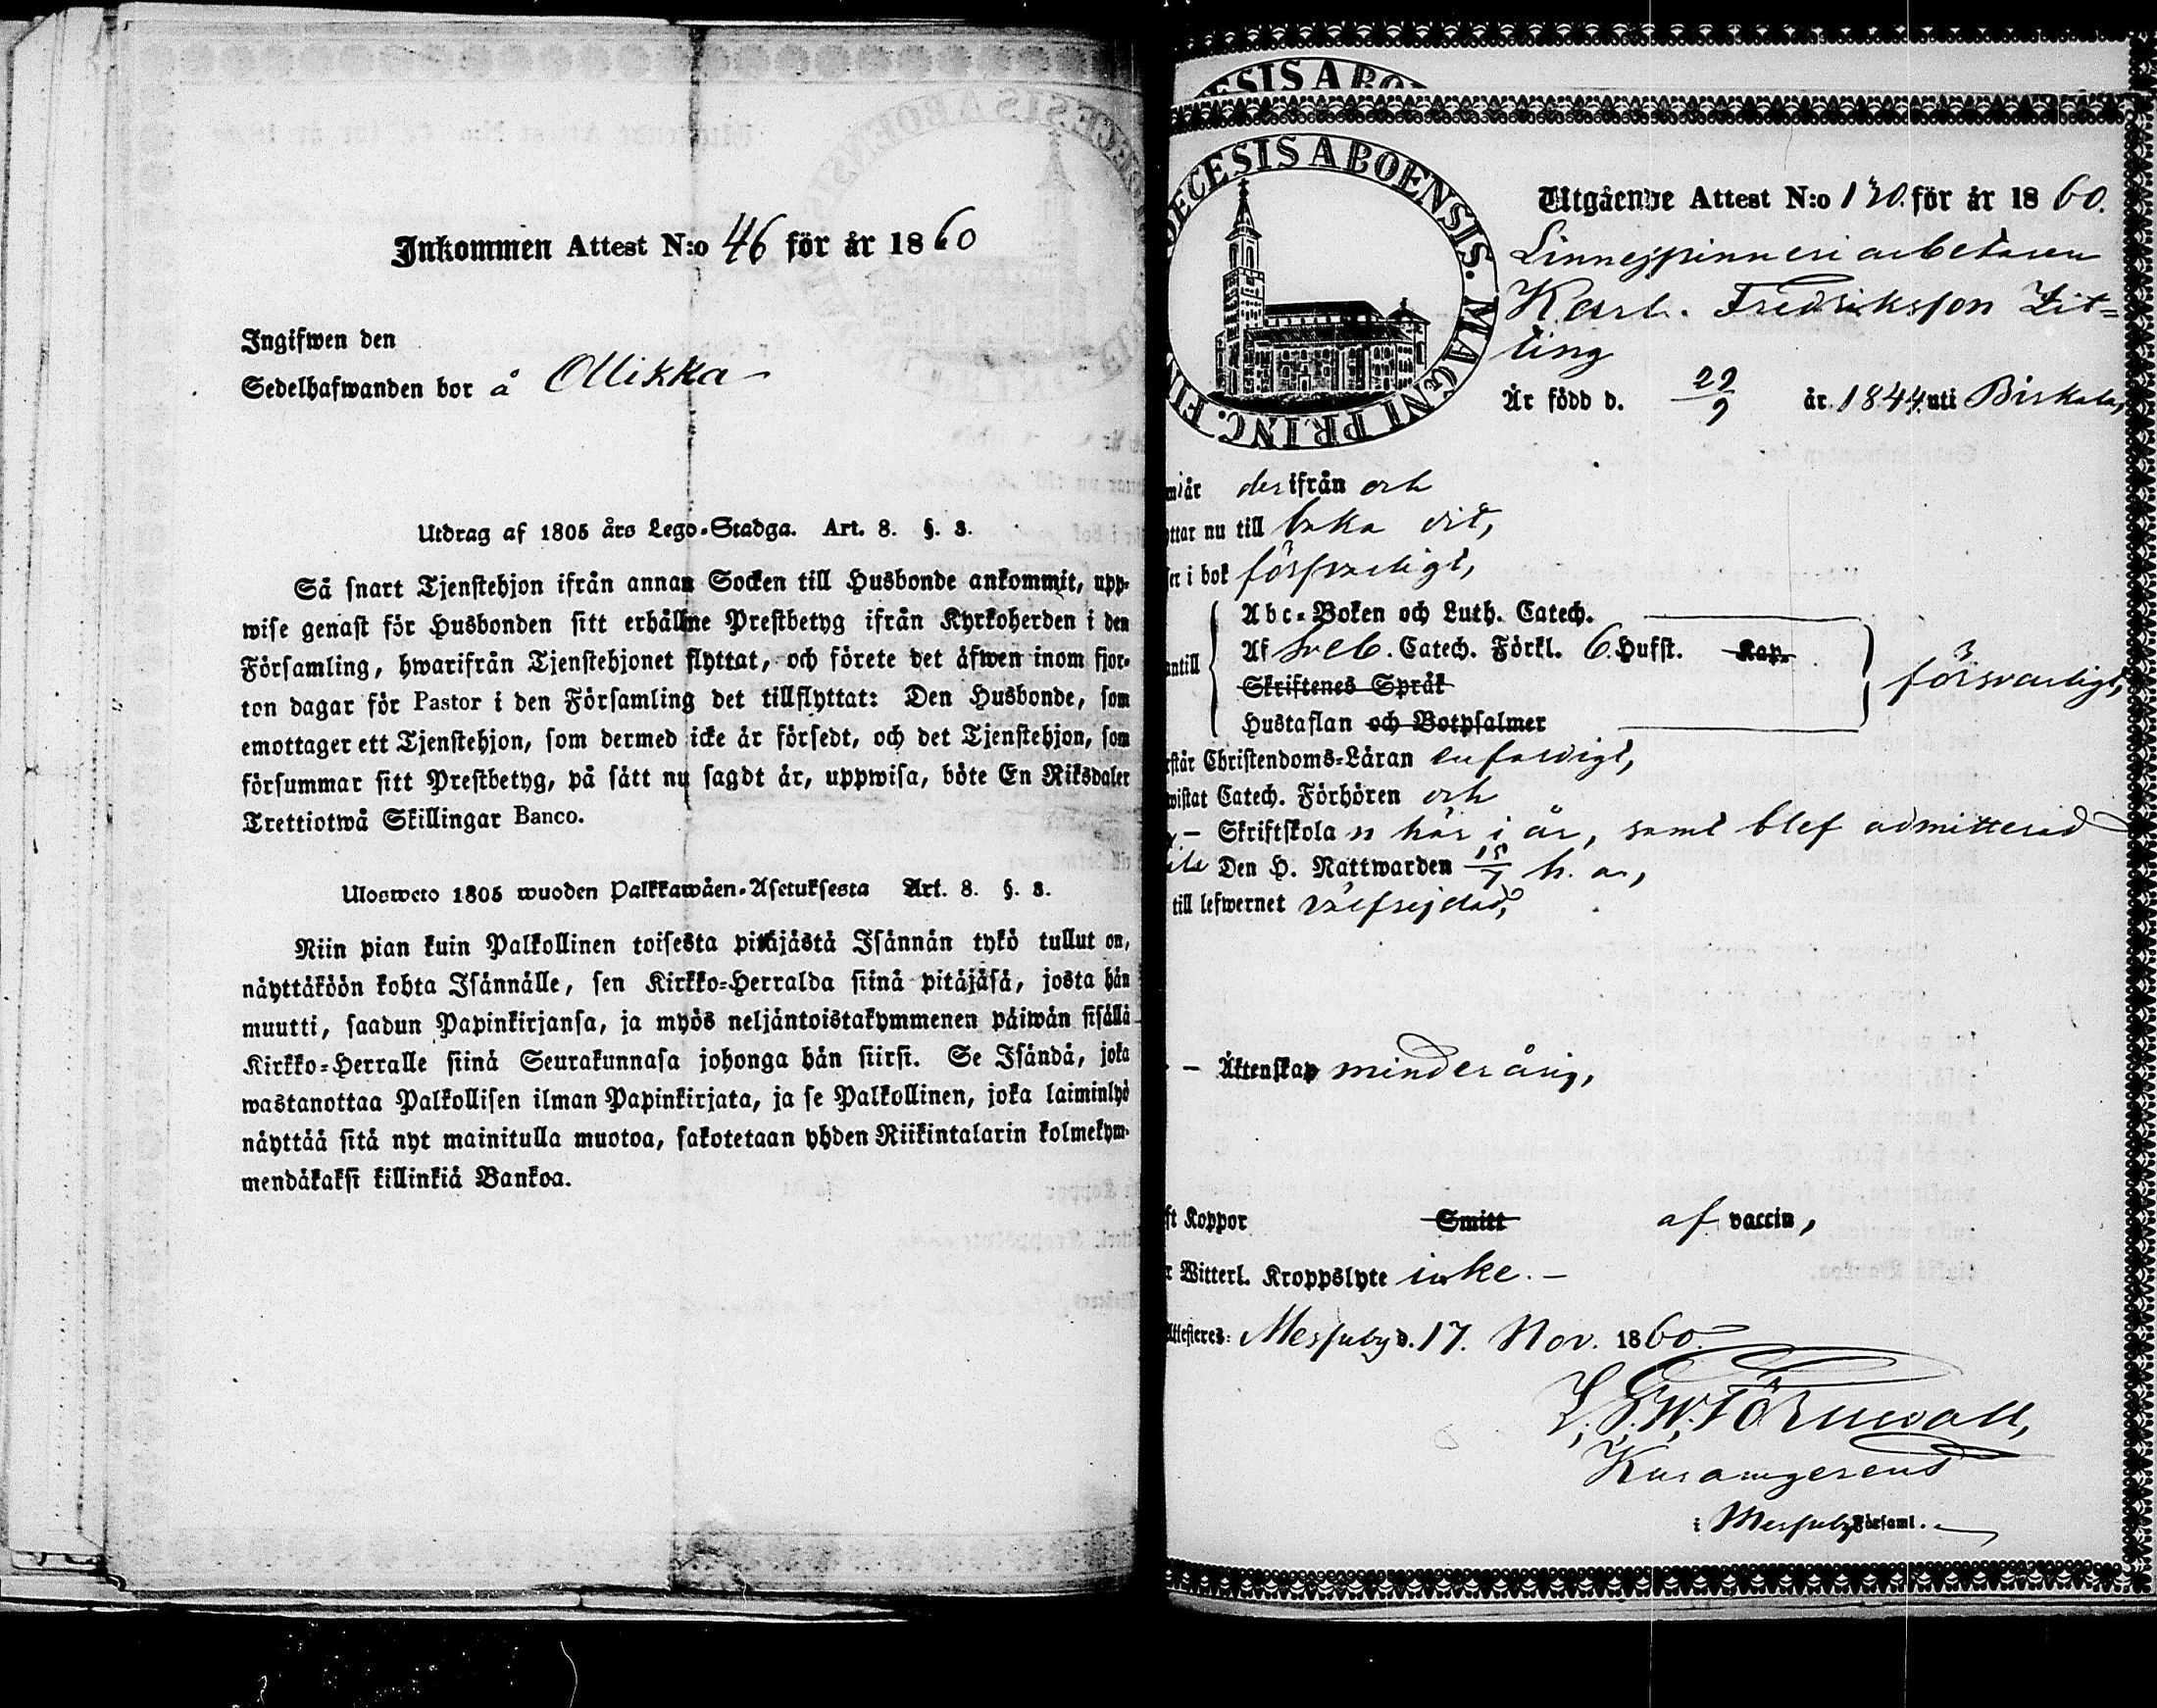 Inkommen Attest N:o 46 för år 1860
Ingifwen den
Sedelhafwanden bor å Ollikka
Utdrag af 1805 års Lego-Stadga. Art. 8. §. 3.
Så snart Tjenstehjon ifrån annan Socken till Husbonde ankommit, upp-
wise genast för Husbonden sitt erhållne Prestbetyg ifrån Kyrkoherden i den
Församling, hwarifrån Tjenstehjonet flyttat, och förete det äfwen inom fjor-
ton dagar för Pastor i den Församling det tillflyttat: Den Husbonde, som
emottager ett Tjenstehjon, som dermed icke är försedt, och det Tjenstehjon, som
försummar sitt Prestbetyg, på sätt nu sagdt är, uppwisa, böte En Riksdaler
Trettiotwå Skillingar Banco.
Ulosweto 1805 wuoden Palkkawäen-Asetuksesta Art. 8. §. 3.
Niin pian kuin Palkollinen toisesta pitäjästä Isännän tykö tullut on,
näyttäköön kohta Isännälle, sen Kirkko-Herralda siinä pitäjäsä, josta hän
muutti, saadun Papinkirjansa, ja myös neljäntoistakymmenen päiwän sisällä
Kirkko-Herralle siinä Seurakunnasa johonga hän siirsi. Se Isändä, joka
wastanottaa Palkollisen ilman Papinkirjata, ja se Palkollinen, joka laiminlyö
näyttää sitä nyt mainitulla muotoa, sakotetaan yhden Riikintalarin kolmekym-
mendäkaksi killinkiä Bankoa.
ESIS ABO
OECESIS ABOENSIS. MAGNI PRINC. FIN
Utgående Attest N:o 130. för år 1860.
Linnespinneri arbetaren
Karl. Fredriksson Lit=
ting
Är född d. 22/9 år 1844 uti Birkala,
är derifrån och
ttar nu till baka dit,
er i bok försvarligt,
antill
Abc-Boken och Luth. Catech.
Af Sveb. Catech. Förkl. 6. Hufst. Kap.
Skriftenes Språk
Hustaflan och Botpsalmer
försvarligt,
står Christendoms-Läran enfaldigt,
wistat Catech. Förhören och
– Skriftskola n här i år, samt blef admitterad
Den H. Nattwarden 15/7 h. a.,
till lefwernet välfrejdad,
– Äktenskap minderårig,
ft Koppor Smitt af vaccin,
r Witterl. Kroppslyte icke. –
Attesteres: Messuby d. 17. Nov. 1860.
L. G. W. Törnwall,
Kuramgerens
i Messuby Församl.